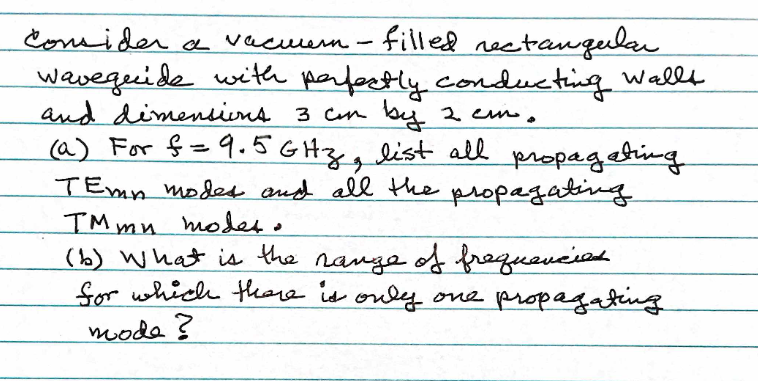 Consider a vacuum-filled rectangular
waveguide with perfectly conducting walls
and dimensions 3 cm by 2 cm.
(a) For f = 9.5 GHz, list all propagating
TEmn modes and all the propagating
TMmn modes.
(b) What is the range of frequencies
for which there is only one propagating
mode?